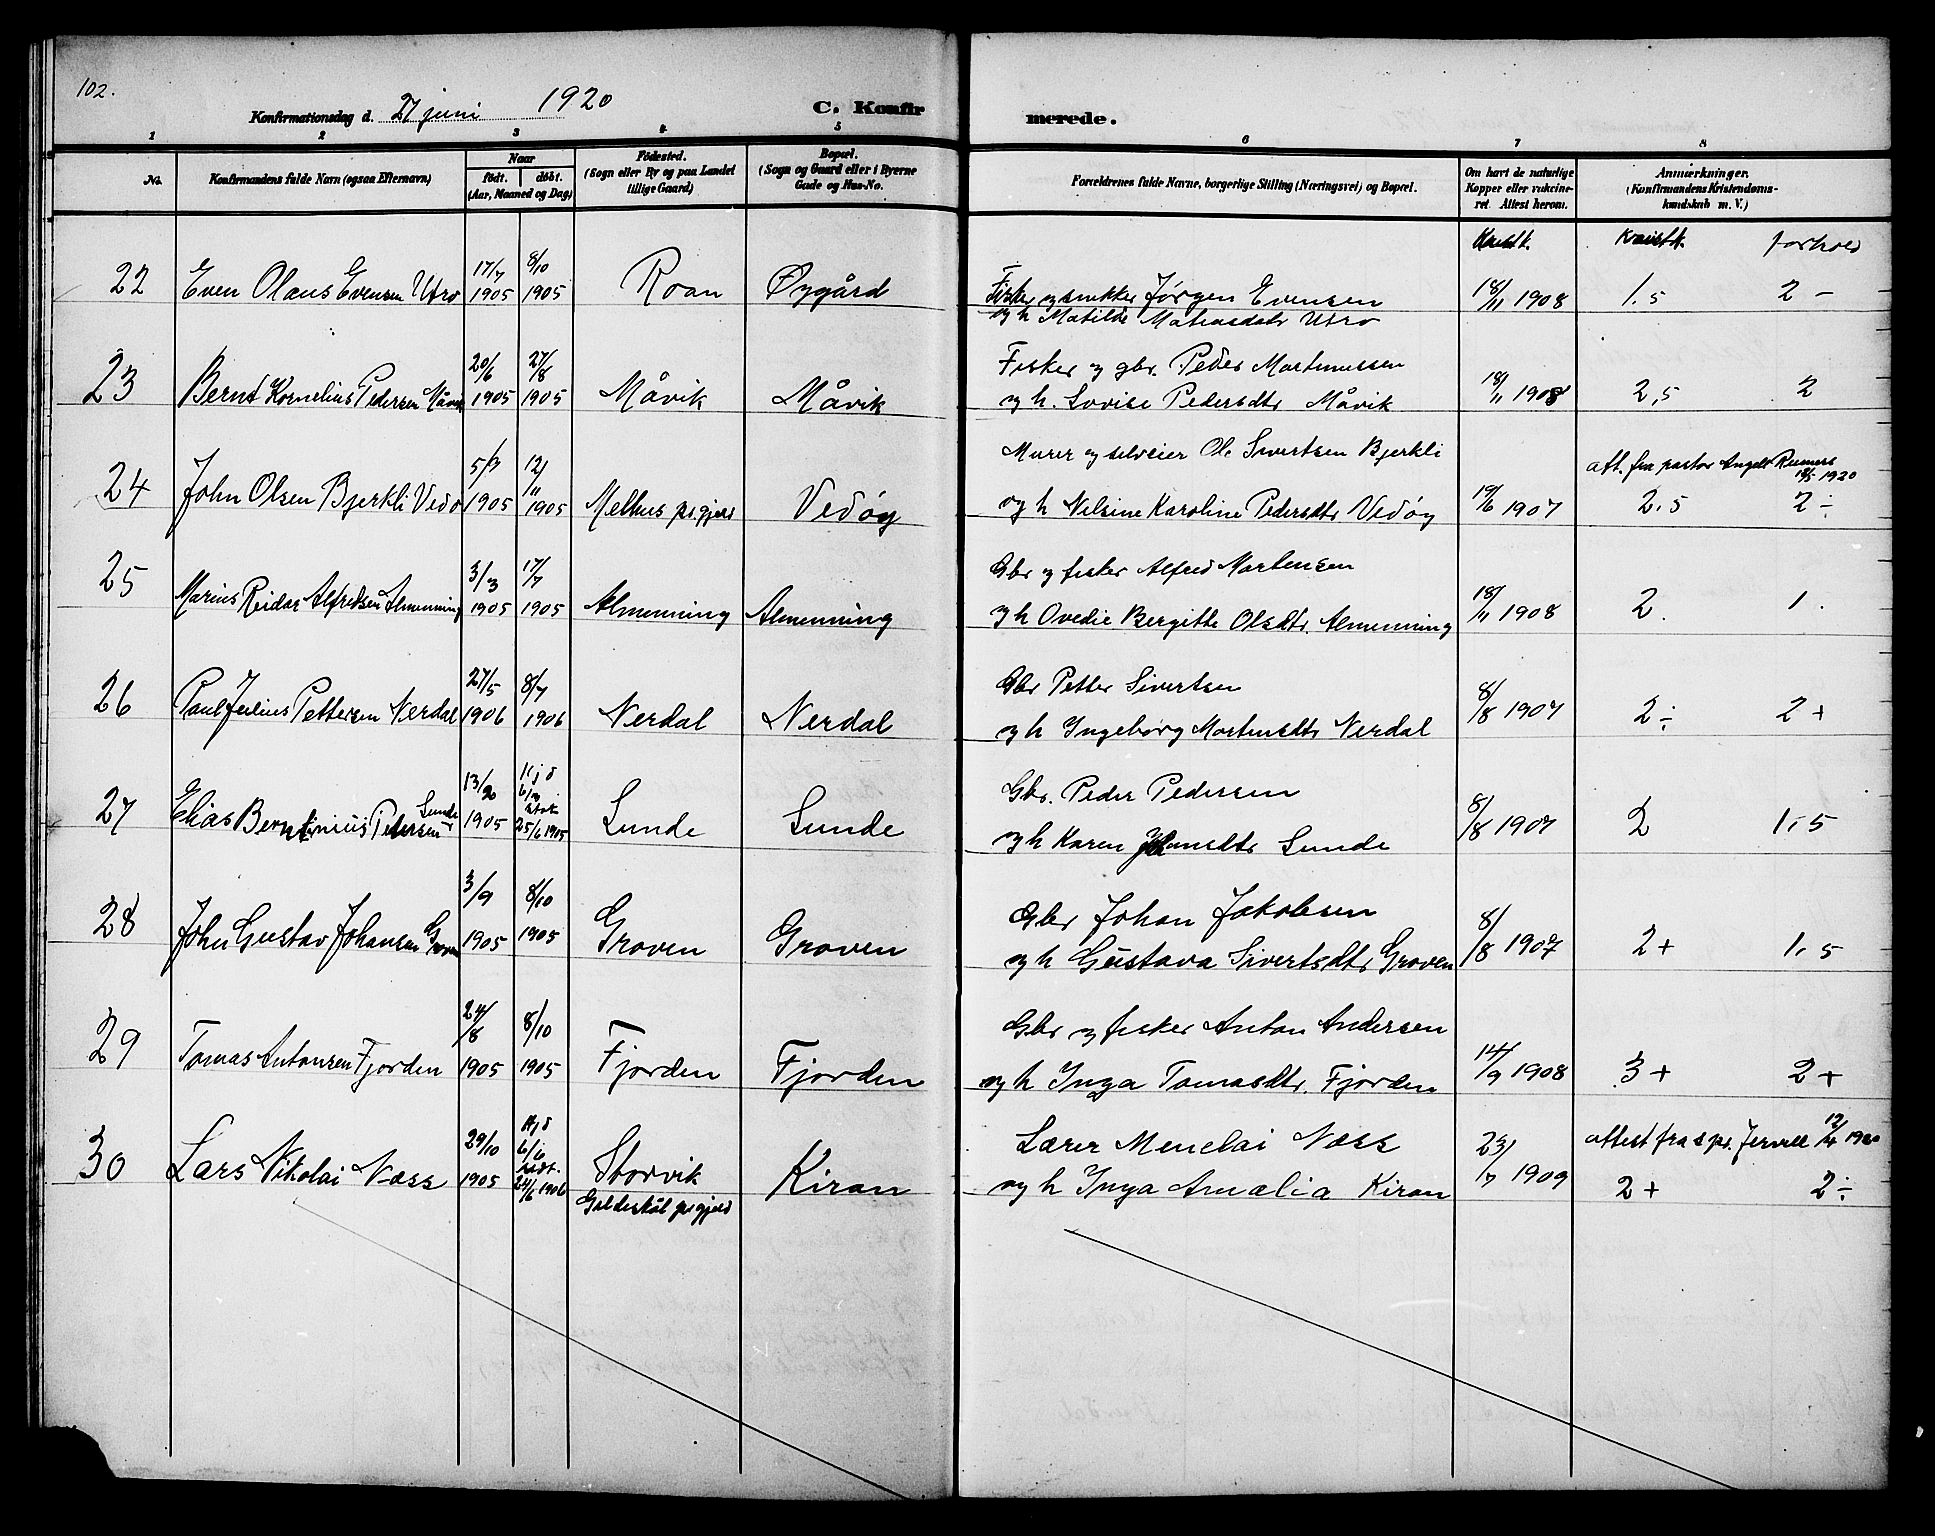 102.
Konfirmationsdag d. 27 juni 1920 C. Konfirmerede.
1 2 3 4 5 6 7 8
No. Konfirmandens fulde Navn (ogsaa Efternavn) Naar født. døbt. (Aar, Maaned og Dag) Fødested. (Sogn eller By og paa Landet tillige Gaard) Bopæl. (Sogn og Gaard eller i Byerne Gade og Hus-No. Forældrenes fulde Navne, borgerlige Stilling (Næringsvei) og Bopæl. Om havt de naturlige Kopper eller vakcineret. Attest herom. Anmærkninger. (Konfirmandens Kristendomskundskab m. V.)
kristk. forhold
22 Even Olaus Evensen Utro 17/7 1905 8/10 1905 Roan Øygård Fisker og snekker Jørgen Evensen 18/11 1908 1.5 2 -
og h Matilde Matiasdatr Utro
23 Bernt Kornelius Pedersen Måvik 20/6 1905 27/8 1905 Måvik Måvik Fisker og gbr. Peder Martinussen
og h. Lovise Pedersdtr Måvik 18/11 1908 2,5 2
24 John Olsen Bjerkli Vedø 5/7 1905 12/11 1905 Melhus prgjeld Vedøy Murer og selveier Ole Sivertsen Bjerkli att. fra pastor Angell 1920
og h Nelsine Karoline Pedersdtr Vedøy 19/6 1907 2.5 2 ÷
25 Marius Reidar Alfredsen Almenning 3/3 1905 17/7 1905 Almenning Almenning Gbr og fisker Alfred Martensen
og h Ovedie Bergitte Olsdtr. Almenning 18/11 1908 2. 1.
26 Paul Julius Pettersen Nerdal 27/5 1906 8/7 1906 Nerdal Nerdal Gbr Petter Sivertsen
og h Ingeborg Mortensdtr Nerdal 8/8 1907 2 ÷ 2 +
27 Elias Berntinius Pedersen Sunde 1905 Hjd 25/6 1905 Sunde Sunde Gbr. Peder Pedersen
og h Karen Sunde 8/8 1907 2 1,5
28 John Gustav Johansen Groven 3/9 1905 8/10 1905 Groven Groven Gbr Johan Jakobsen
og h Gustava Sivertsdtr Groven 8/8 1907 2 + 1,5
29 Tomas Antonsen Fjorden 24/8 1905 8/10 1905 Fjorden Fjorden Gbr og fisker Anton Andersen
og h Inga Tomasdtr. Fjorden 14/9 1908 3 + 2 +
30 Lars Nikolai Næss 29/10 1905 Hjd 6/6 24/6 1906 Storvik Gildeskål prgjeld Kiran Lærer Menelai Næss attest fra spr. Jervell 1920
og h Inga Amalia Kiran 23/7 1909 2 + 2 ÷